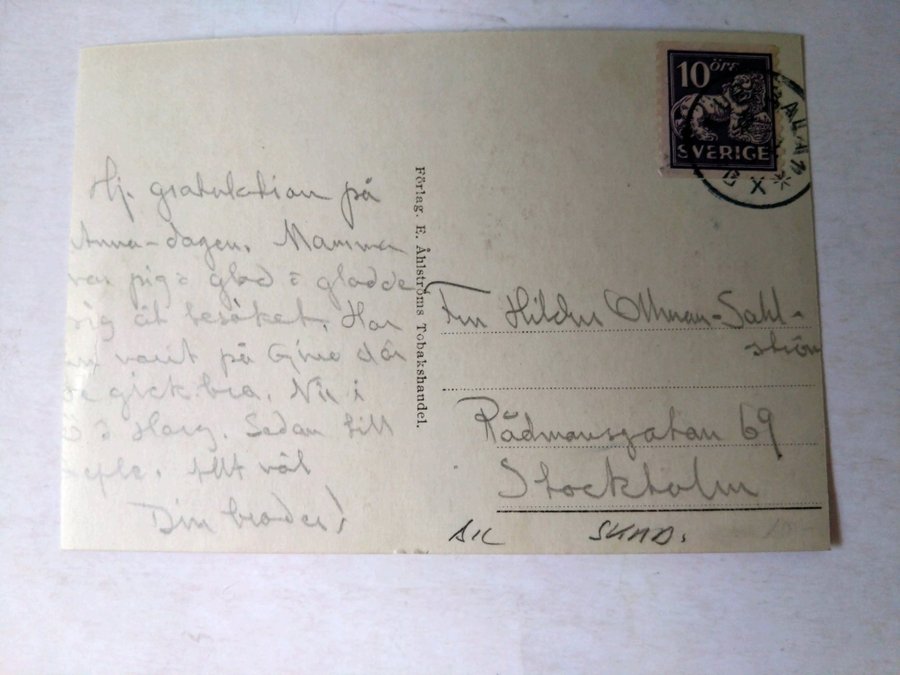 Hj. gratulation på
Anna-dagen. Mamma
var pigg o glad o gladde
sig åt besöket. Har
varit på Gimo där
gick bra. Nu i
Harg. Sedan till
Allt väl
Din broder!
Förlag. E. Åhlströms Tobakshandel.
10 ÖRE
SVERIGE
Fru Hildur Öhman-Sahl-
ström
Rådmansgatan 69
Stockholm